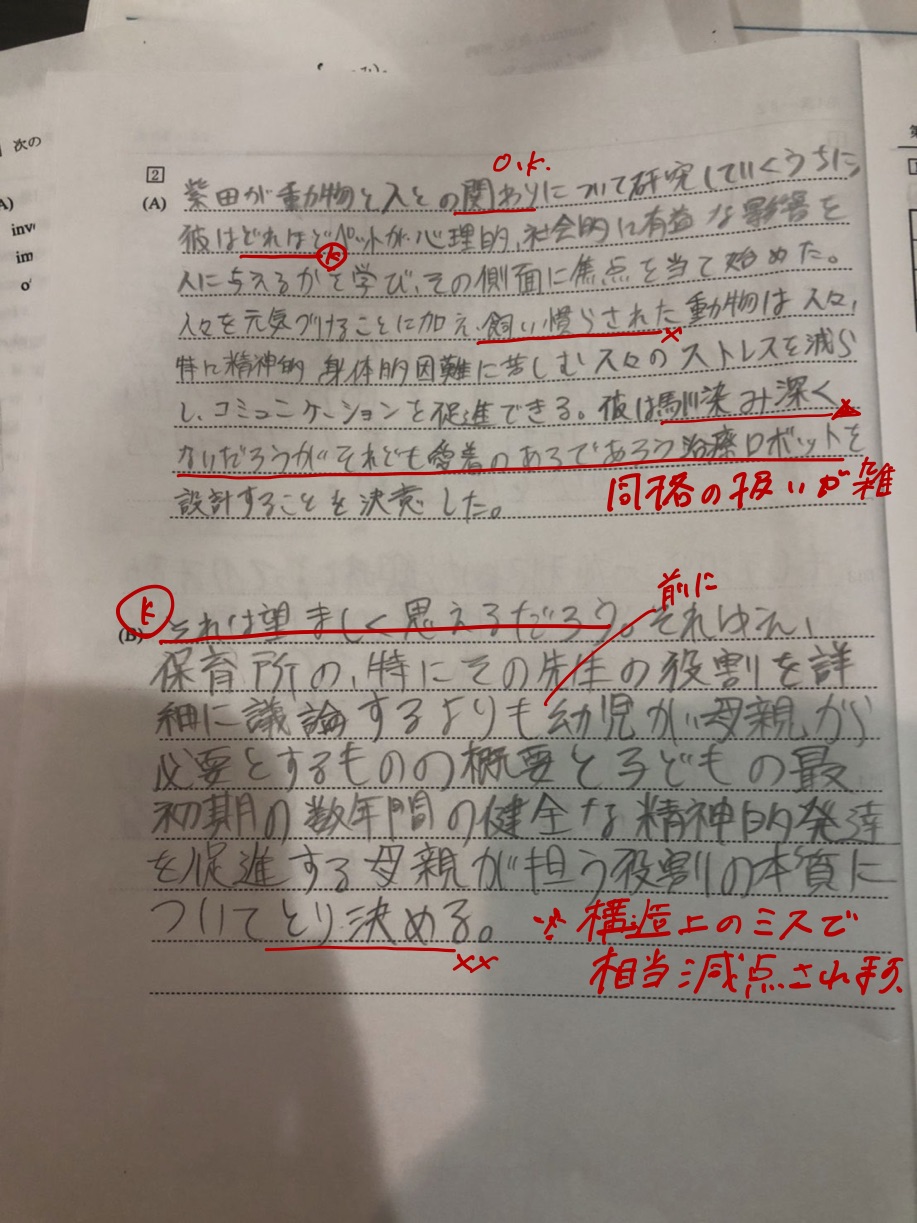 次の
A)
inv
im
o
2
O.K.
(A) 柴田が動物と人との関わりについて研究していくうちに、
彼はどれほどペットが心理的、社会的に有益な影響を
k
人に与えるかを学び、その側面に焦点を当て始めた。
人々を元気づけることに加え、飼い慣らされた動物は人々、
特に精神的身体的困難に苦しむ人々のストレスを減ら
し、コミュニケーションを促進できる。彼は馴染み深く
ないだろうがそれでも愛着のあるであろう治療ロボットを
設計することを決意した。
同格の扱いが雑
k
前に
(B) それは望ましく思えるだろう。それゆえ、
保育所の、特にその先生の役割を詳
細に議論するよりも幼児が母親から
必要とするものの概要と子どもの最
初期の数年間の健全な精神的発達
を促進する母親が担う役割の本質に
ついてとり決める。
※構造上のミスで
相当減点されます。